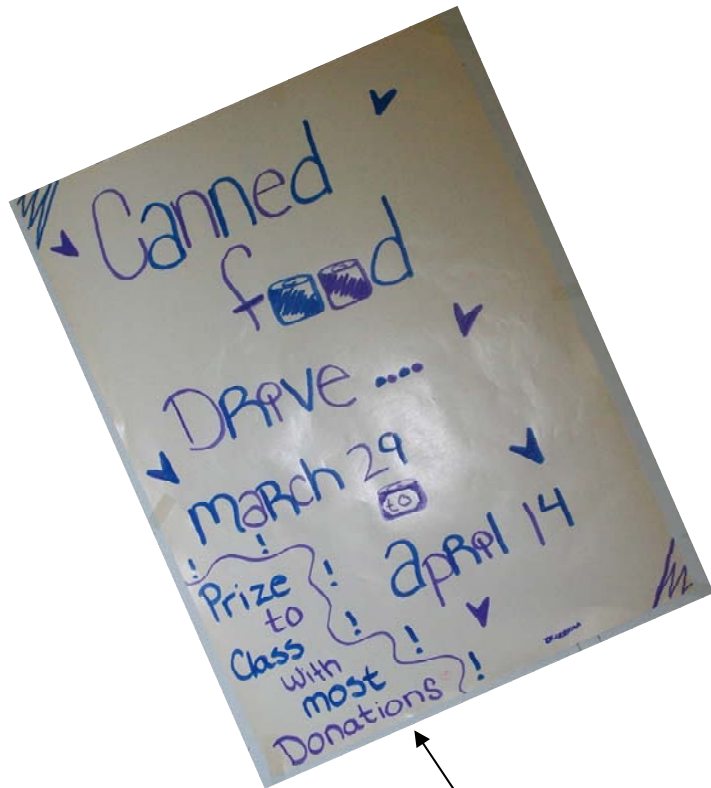 Canned
food
DRiVE ....
maRch 29
to
apRil 14
Prize
to
Class
with
most
Donations